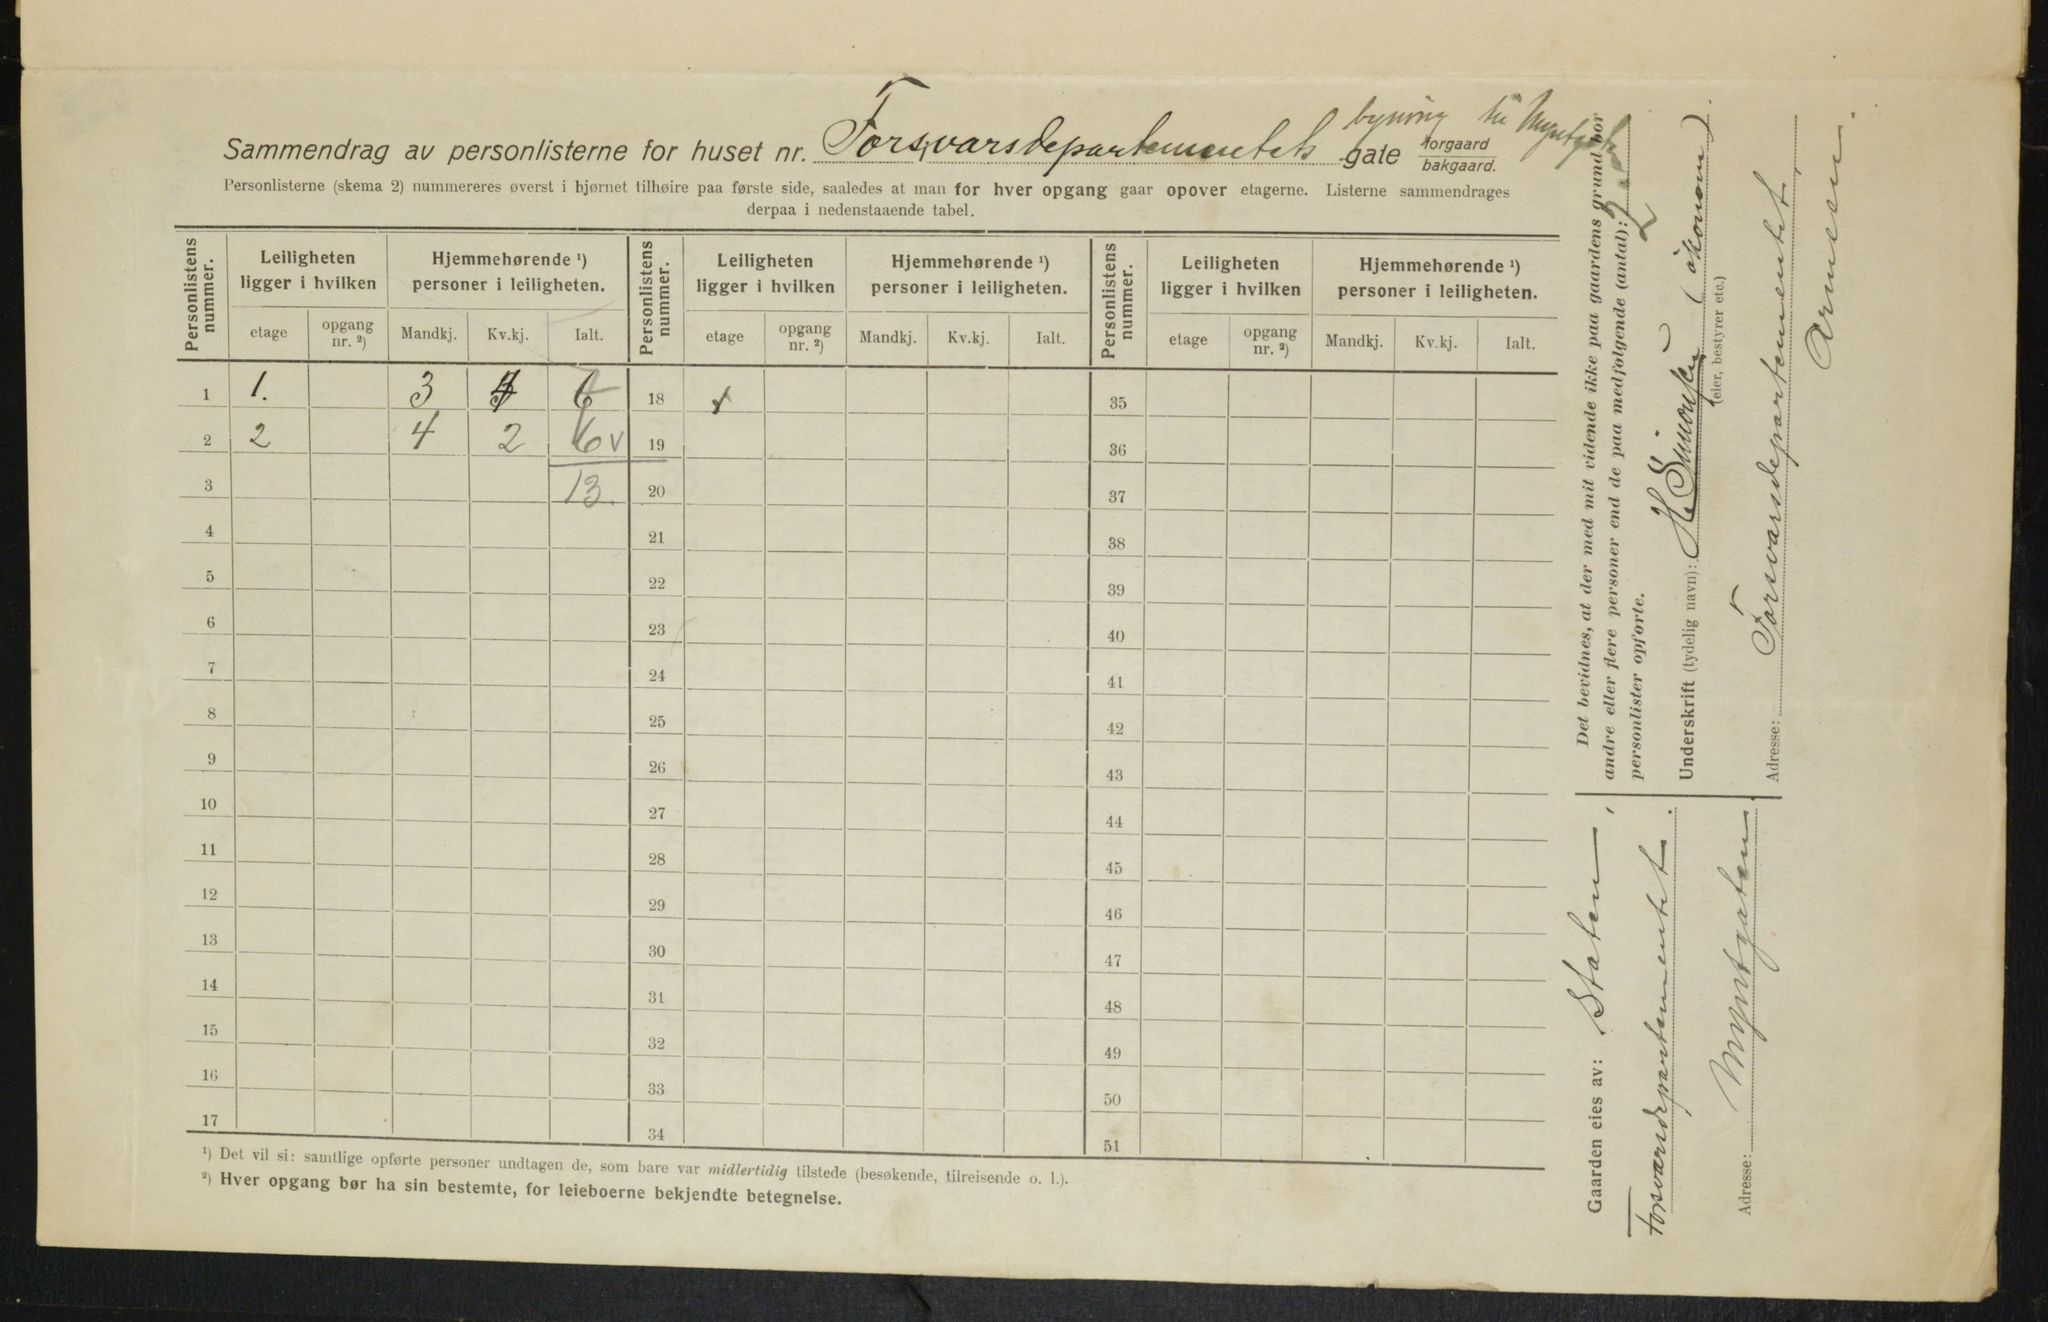 bygning til Myntgaten
Sammendrag av personlisterne for huset nr. Forsvarsdepartementets gate forgaard bakgaard.
Personlisterne (skema 2) nummereres øverst i hjørnet tilhøire paa første side, saaledes at man for hver opgang gaar opover etagerne. Listerne sammendrages
derpaa i nedenstaaende tabel.
Personlistens nummer. Leiligheten ligger i hvilken Hjemmehørende ¹) personer i leiligheten. Personlistens nummer. Leiligheten ligger i hvilken Hjemmehørende ¹) personer i leiligheten. Personlistens nummer. Leiligheten ligger i hvilken Hjemmehørende ¹) personer i leiligheten.
etage opgang nr. ²) Mandkj. Kv.kj. Ialt. etage opgang nr. ²) Mandkj. Kv.kj. Ialt. etage opgang nr. ²) Mandkj. Kv.kj. Ialt.
1 1. 3 18 35
2 2 4 2 6 v 19 36
3 13. 20 37
4 21 38
5 22 39
6 23 40
7 24 41
8 25 42
9 26 43
10 27 44
11 28 45
12 29 46
13 30 47
14 31 48
15 32 49
16 33 50
17 34 51
¹) Det vil si: samtlige opførte personer undtagen de, som bare var midlertidig tilstede (besøkende, tilreisende o. l.).
²) Hver opgang bør ha sin bestemte, for leieboerne bekjendte betegnelse.
Det bevidnes, at der med mit vidende ikke paa gaardens grund bor
andre eller flere personer end de paa medfølgende (antal): 2
personlister opførte.
Underskrift (tydelig navn): H. Simonsen (økonom)
(eier, bestyrer etc.)
Adresse: Forsvarsdepartementet.
Armeen.
Gaarden eies av: Staten,
Forsvarsdepartementet.
Adresse: Myntgaten